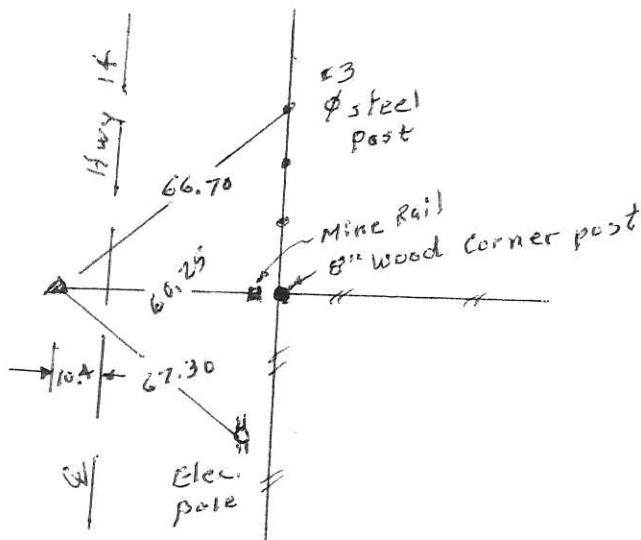 Hwy 14
#3
ϕ steel
post
66.70
Mine Rail
8" Wood Corner post
60.25
10.4
67.30
Elec.
pole